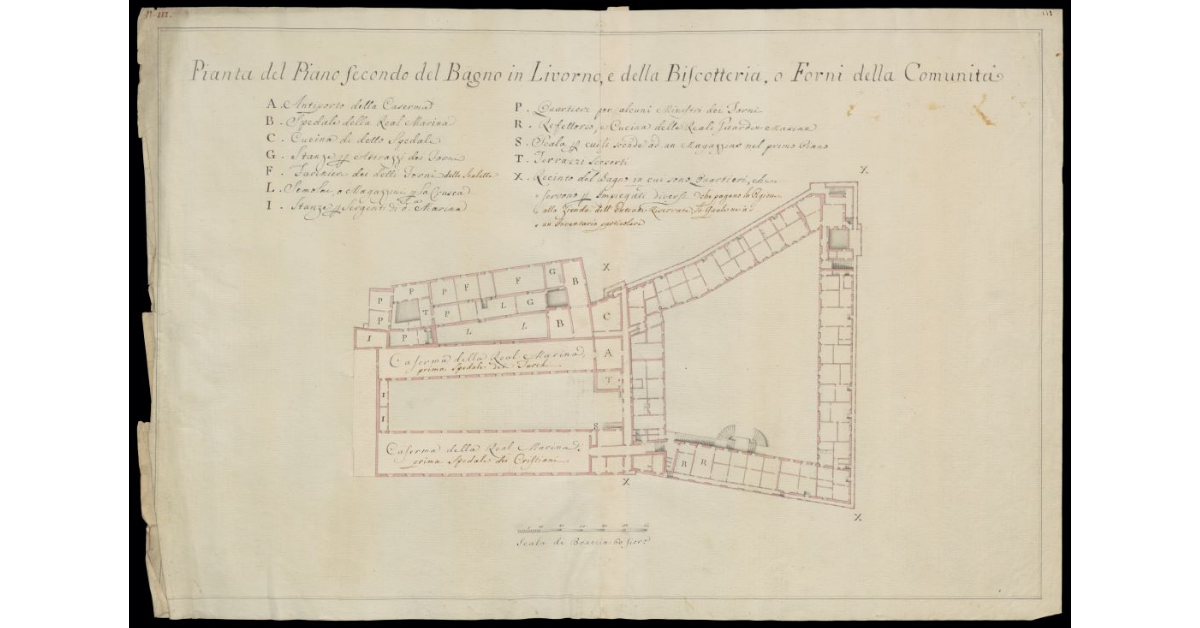 Pianta del Piano secondo del Bagno in Livorno, e della Biscotteria, o Forni della Comunità
A. Anteporto della Caserma
B. Spedale della Real Marina
C. Cucina di detto Spedale
G. Stanze p gl'Attrazzj dei Forni
F. Farinieri dei detti Forni
L. Semolai o Magazzini p la Crusca
I. Stanze p Sergenti di Marina
P. Quartieri per alcuni Ministri dei Forni
R. Refettorio, e Cucina delle Reali Guardie Marine
S. Scala p cui si scende ad un Magazzino nel primo Piano
T. Terrazzi Scoperti
X. Recinto del Bagno in cui sono Quartieri, che
servono p Impiegati diversi che pagano la Pigione
un Inventario particolare
X
X
P P F F G B
P T P L G
P L L B C
I P
Caserma della Real Marina,
prima Spedale dei Turchi
A
T
I
I
S
Caserma della Real Marina,
prima Spedale dei Cristiani
R R
X
X
Scala de Braccia 60 fior: